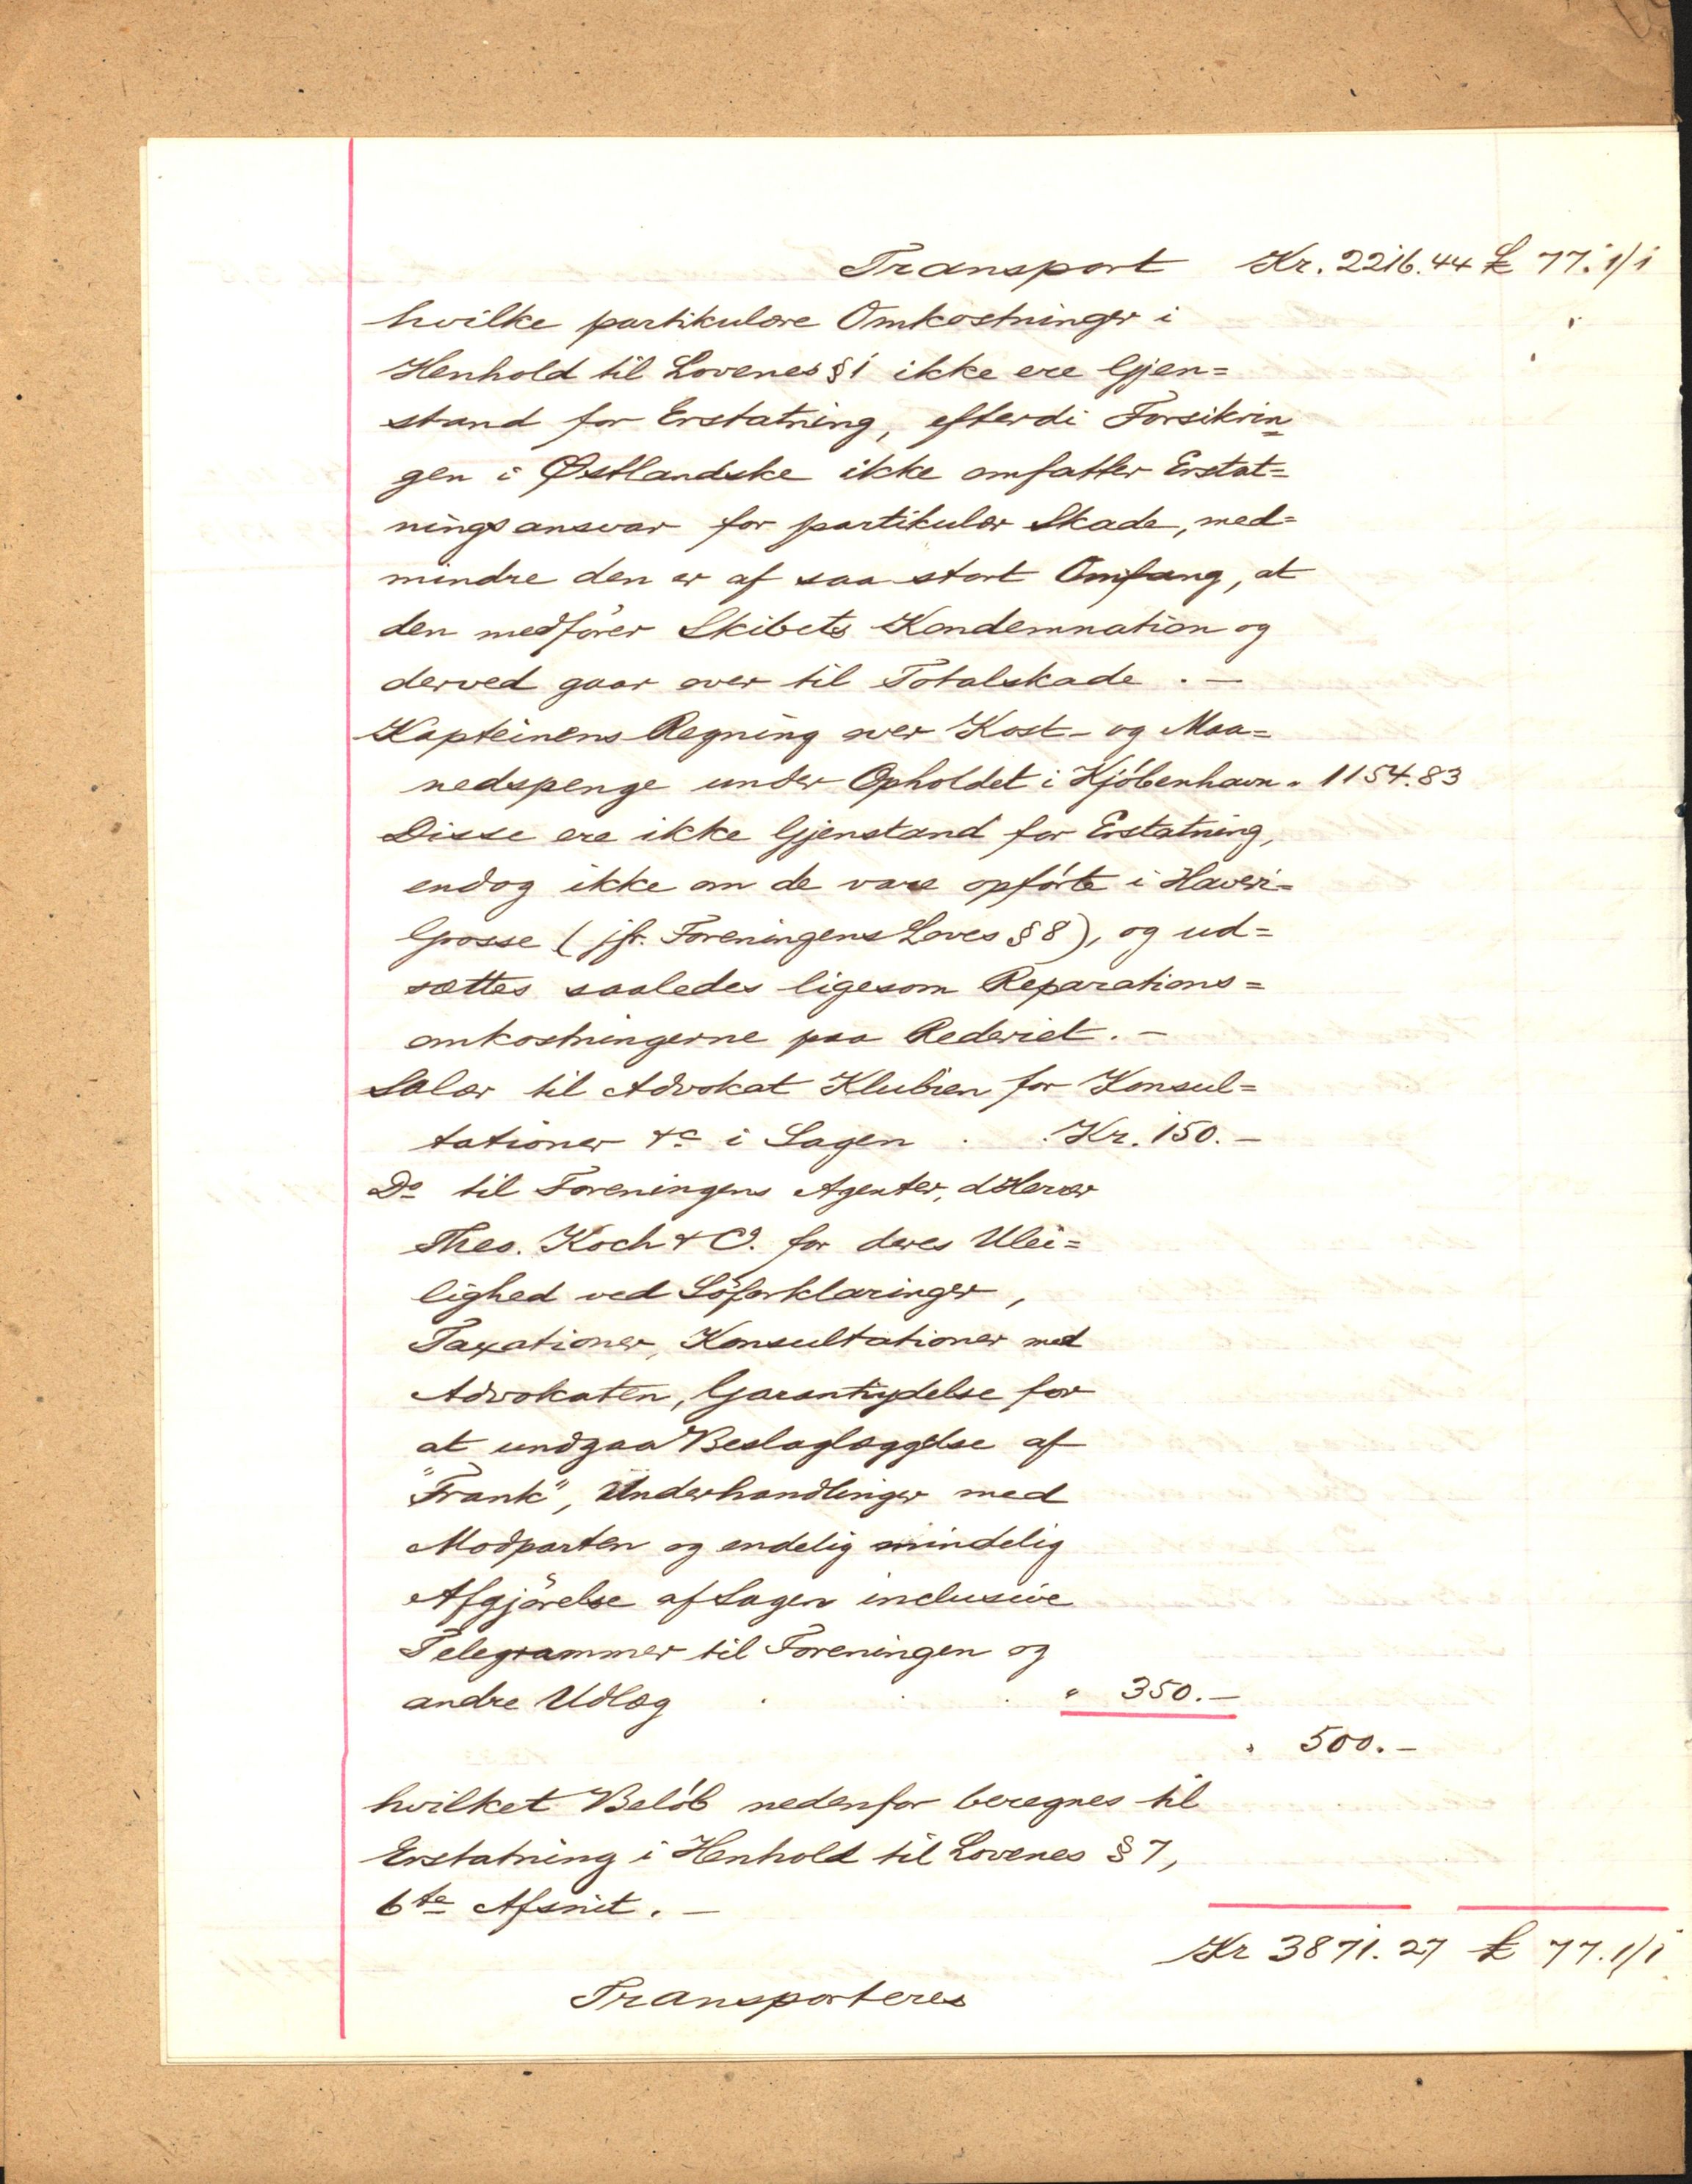 Transport Kr. 2216.44 £ 77.1/1
hvilke partikulære Omkostninger i
Henhold til Lovenes § 1 ikke ere Gjen=
stand for Erstatning, efterdi Forsikrin=
gen i Østlandske ikke omfatter Erstat=
ningsansvar for partikulær Skade, med=
mindre den er af saa stort Omfang, at
den medfører Skibets Kondemnation og
derved gaar over til Totalskade. —
Kapteinens Regning over Kost- og Maa=
nedspenge under Opholdet i Kjøbenhavn " 1154.83
Disse ere ikke Gjenstand for Erstatning,
endog ikke om de vare opførte i Haveri=
Grosse (jfr. Foreningens Loves § 8), og ud=
sættes saaledes ligesom Reparations=
omkostningerne paa Rederiet. —
Salær til Advokat Klubien for Konsul=
tationer &c i Sagen . . Kr. 150. —
Do til Foreningens Agenter, dHerrer
Theo. Koch & Co. for deres Ulei=
lighed ved Søforklaringer,
Taxationer, Konsultationer med
Advokaten, Garantiydelse for
at undgaa Beslaglæggelse af
"Frank", Underhandlinger med
Modparten og endelig mindelig
Afgjørelse af Sagen inclusive
Telegrammer til Foreningen og
andre Udlæg . . . " 350. —
" 500. —
hvilket Beløb nedenfor beregnes til
Erstatning i Henhold til Lovenes § 7,
6te Afsnit. —
Kr 3871.27 £ 77.1/1
Transporteres